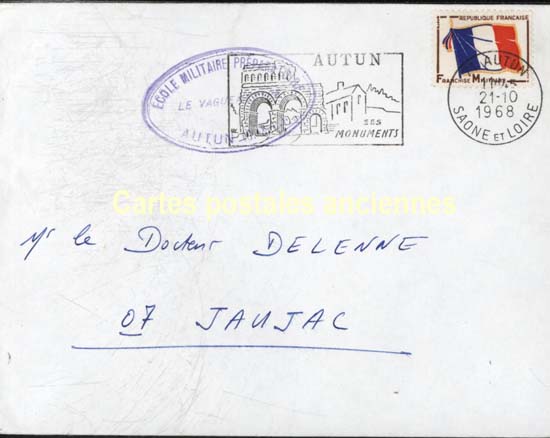 REPUBLIQUE FRANÇAISE
FRANCHISE MILITAIRE
AUTUN
21-10
1968
SAONE ET LOIRE
AUTUN
SES
MONUMENTS
ECOLE MILITAIRE
LE VAGUE
AUTUN
Cartes postales anciennes
Mr le Docteur DELENNE
07 JAUJAC